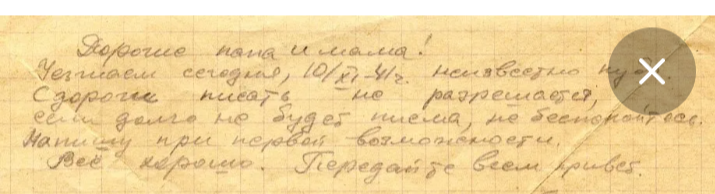 Дорогие папа и мама!
Уезжаем сегодня, 10/XI-41г. неизвестно
С дороги писать не разрешается,
если долго не будет писма, не беспокойтесь.
Напишу при первой возможности.
Всё хорошо. Передайте всем привет.